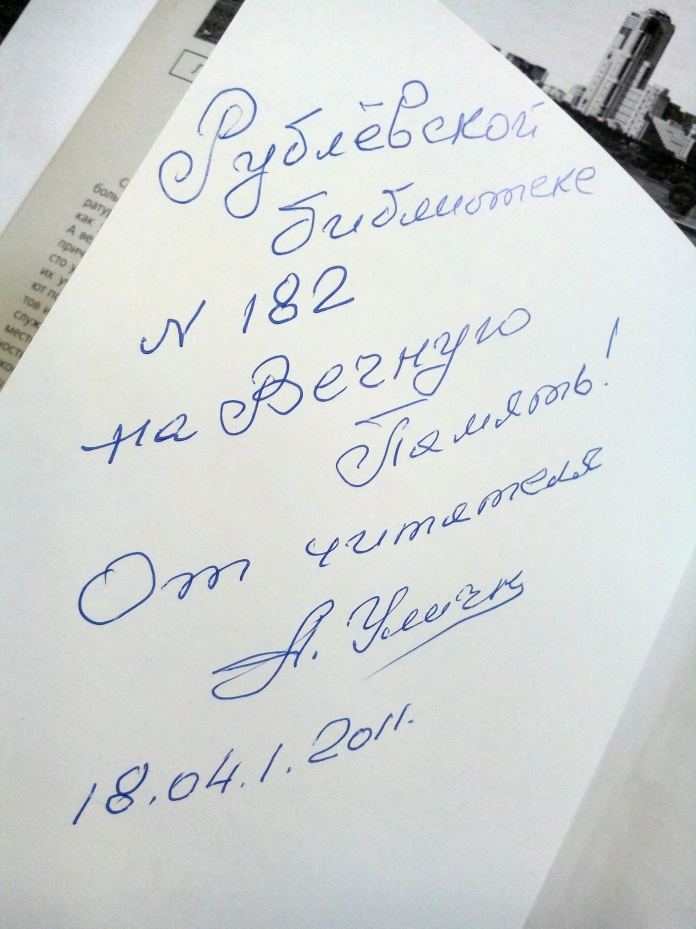 Рублёвской
библиотеке
N 182
на Вечную
Память!
От читателя
А. Уличк
18.04.1.2011.